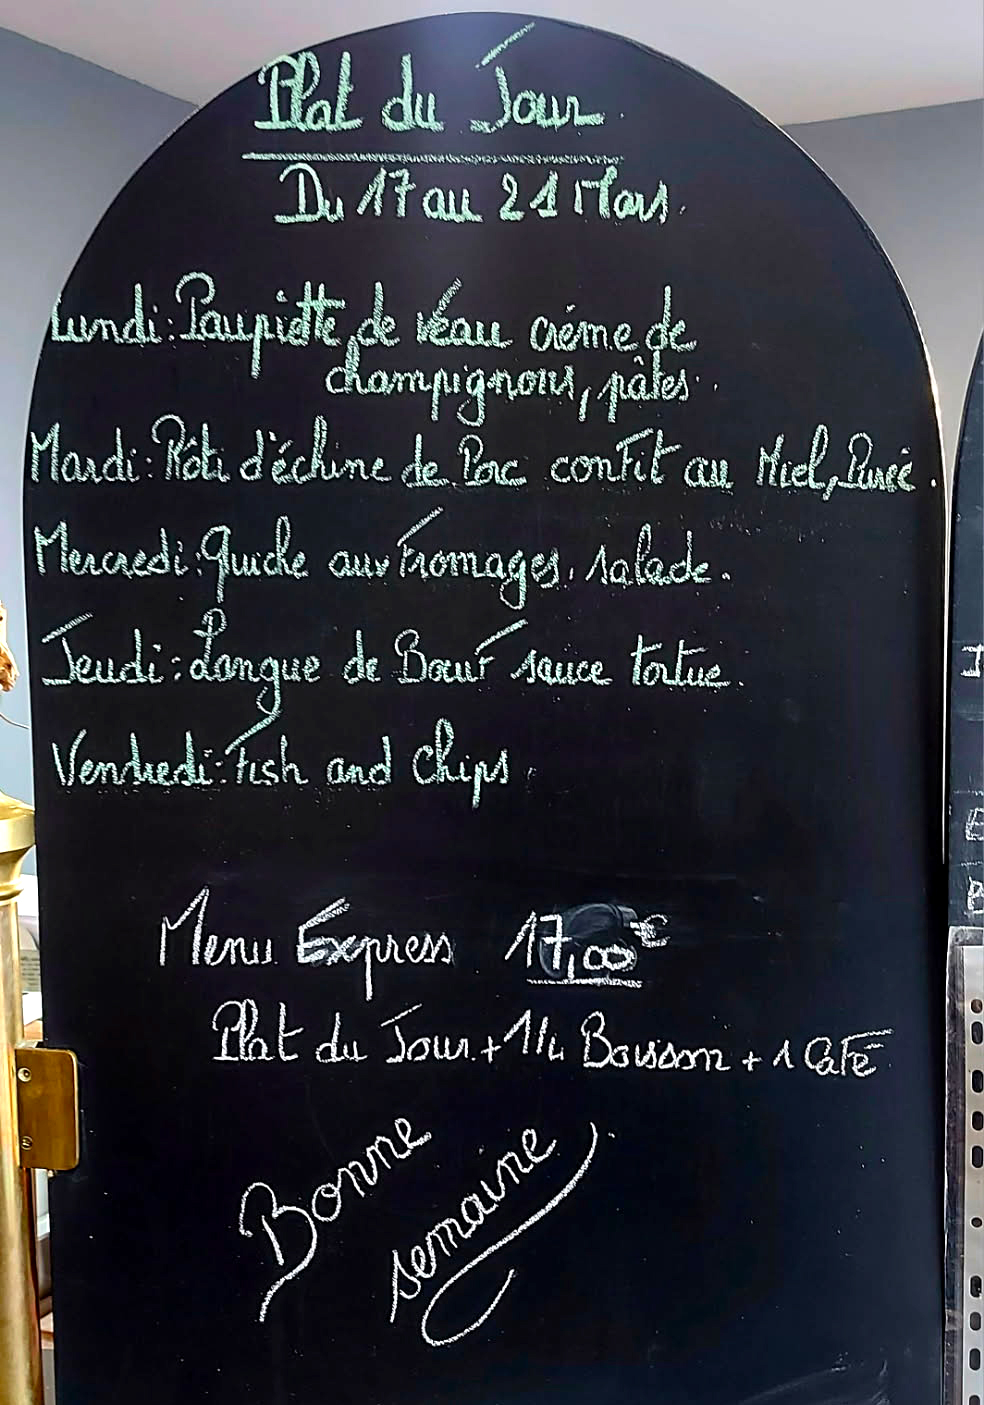 Plat du Jour
Du 17 au 21 Mars.
Lundi: Paupiette de veau crème de
champignons, pâtes.
Mardi: Rôti d'échine de Porc confit au Miel, Purée.
Mercredi: Quiche aux Fromages, salade.
Jeudi: Langue de Boeuf sauce tortue.
Vendredi: Fish and Chips.
Menu Express 17,00€
Plat du Jour + 1/4 Boisson + 1 Café
Bonne
semaine